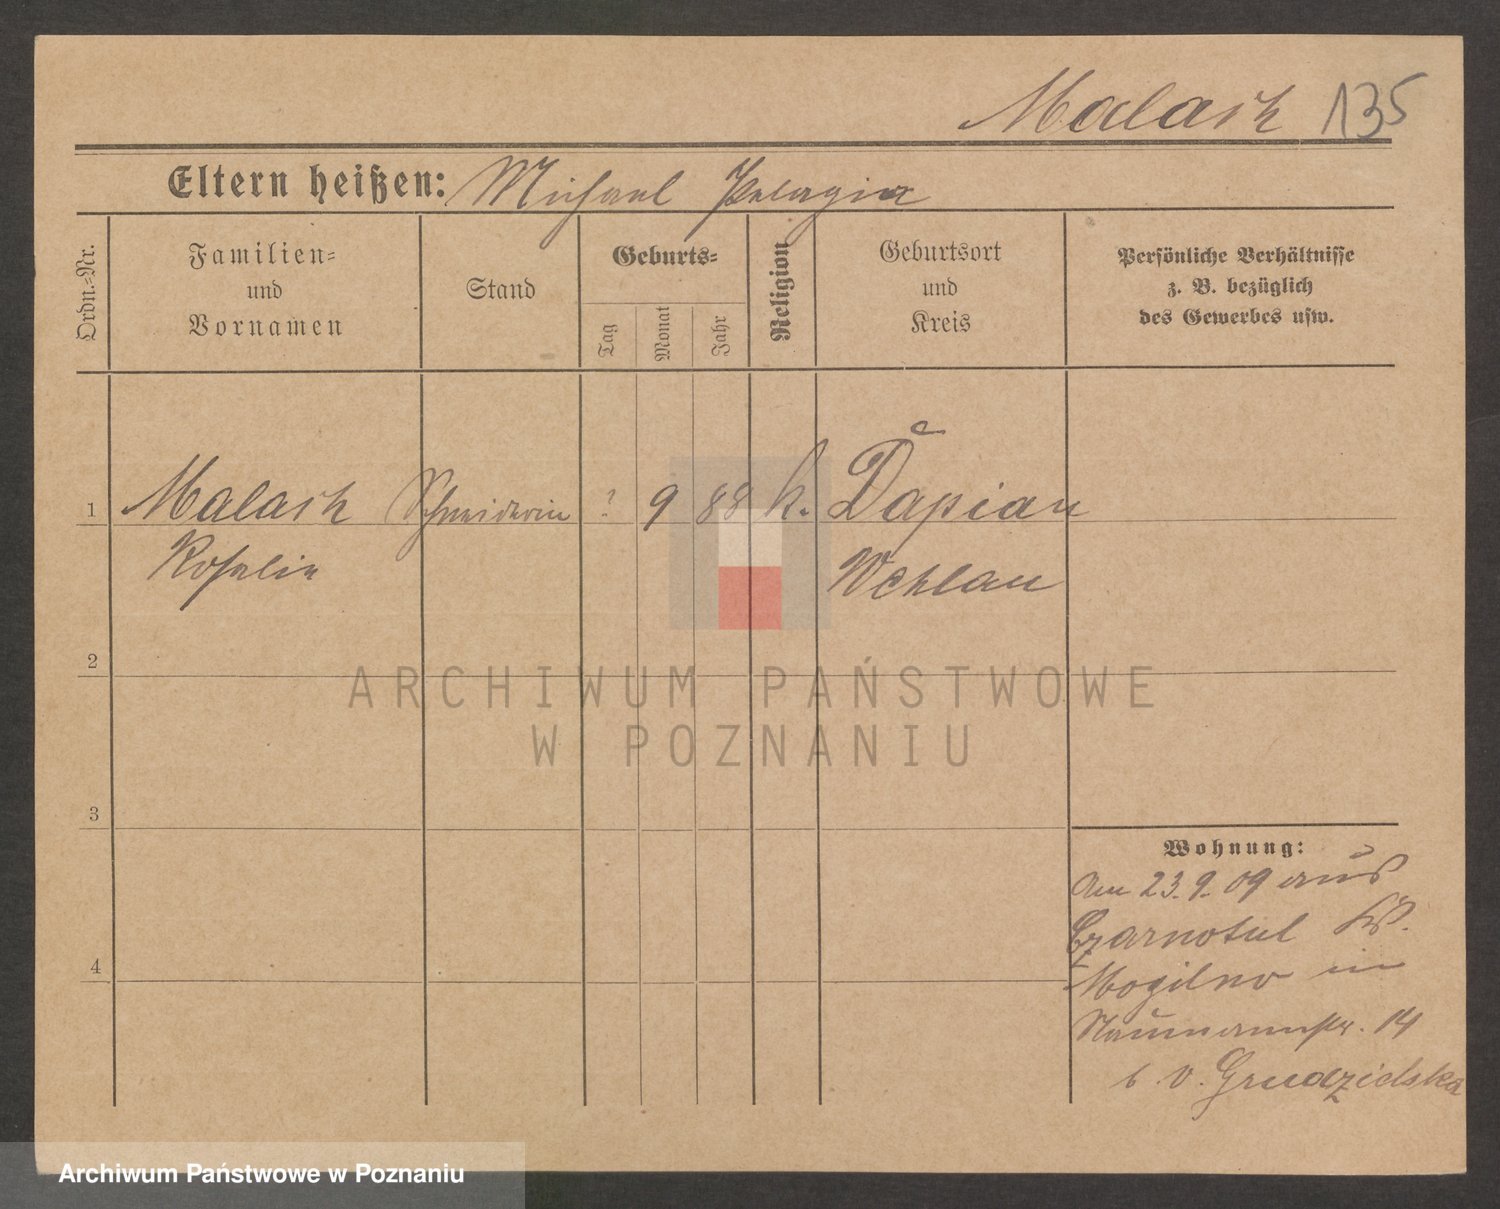 Malash 135
Eltern heißen: Michael Pelagia
Ordn.-Nr.
Familien-
und
Vornamen
Stand
Geburts-
Tag
Monat
Jahr
Religion
Geburtsort
und
Kreis
Persönliche Verhältnisse
z. B. bezüglich
des Gewerbes usw.
1 Malash Schneiderin ? 9 88 k. Dapian
Rosalie Wehlau
2
3
4
Wohnung:
Am 23.9.09 aus
Czarnotul
Mogilno in
Naumannstr. 14
b. v. Grudzielska
ARCHIWUM PAŃSTWOWE
W POZNANIU
Archiwum Państwowe w Poznaniu